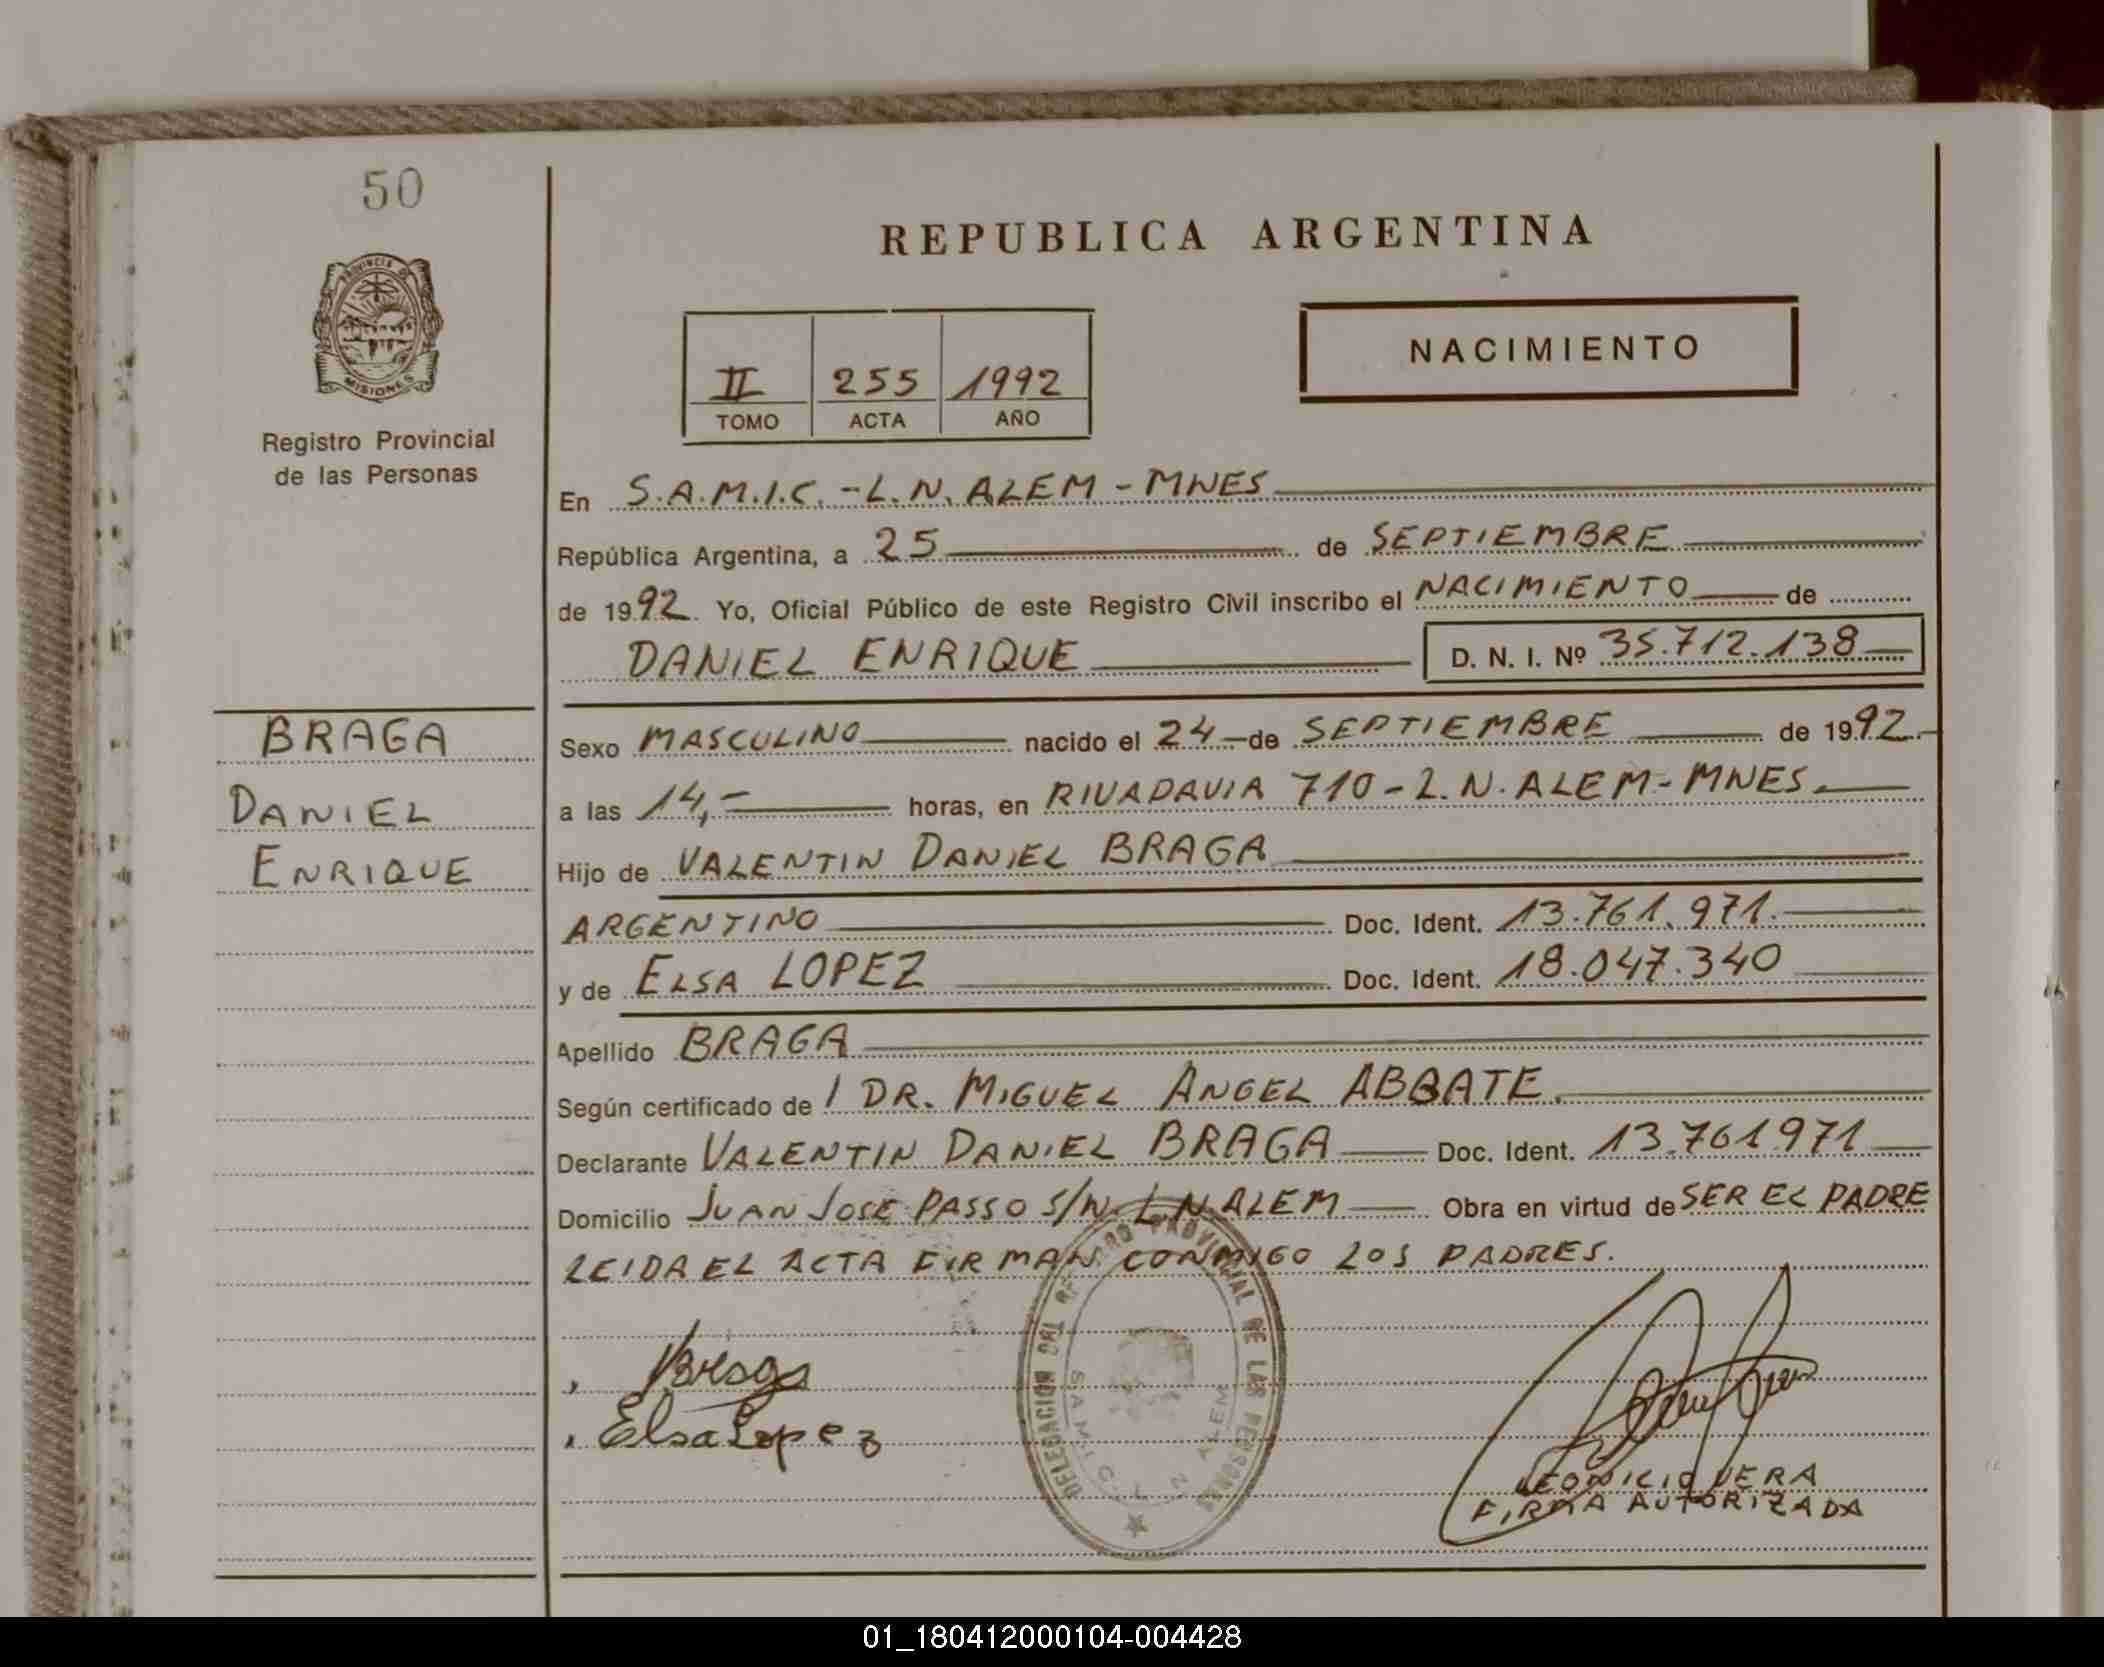 50
REPUBLICA ARGENTINA
PROVINCIA DE
MISIONES
NACIMIENTO
II 255 1992
TOMO ACTA AÑO
Registro Provincial
de las Personas
En S.A.M.I.C. - L.N. ALEM - MNES
República Argentina, a 25 de SEPTIEMBRE
de 1992. Yo, Oficial Público de este Registro Civil inscribo el NACIMIENTO de
DANIEL ENRIQUE D. N. I. Nº 35.712.138
BRAGA
DANIEL
ENRIQUE
Sexo MASCULINO nacido el 24 de SEPTIEMBRE de 1992.
a las 14,- horas, en RIVADAVIA 710 - L.N. ALEM - MNES.
Hijo de VALENTIN DANIEL BRAGA
ARGENTINO Doc. Ident. 13.761.971.
y de ELSA LOPEZ Doc. Ident. 18.047.340
Apellido BRAGA
Según certificado de / DR. MIGUEL ANGEL ABBATE.
Declarante VALENTIN DANIEL BRAGA Doc. Ident. 13.761971
Domicilio JUAN JOSE PASSO S/N. L N ALEM Obra en virtud de SER EL PADRE
LEIDA EL ACTA FIRMAN CONMIGO LOS PADRES.
Braga
Elsa Lopez
DELEGACION DEL REGISTRO PROVINCIAL DE LAS PERSONAS
S.A.M.I.C. L. N. ALEM
LEONICIO VERA
FIRMA AUTORIZADA
01_180412000104-004428